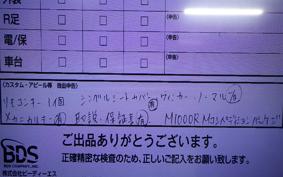 外装 □ □ □ (申告)
R足 □ □ □
電/保 □ □ □ (申告)
車台 □ □ □
(カスタム・アピール等 自由申告)
リモコンキー1個 シングルシートカバー有 ウィンカー ノーマル有
メカニカルキー有 取説・保証書有 M1000R Mコンペティションパッケージ
ご出品ありがとうございます。
正確精密な検査のため、正しいご記入をお願い致します。
BDS
BDS COMPANY, INC.
株式会社ビーディーエス